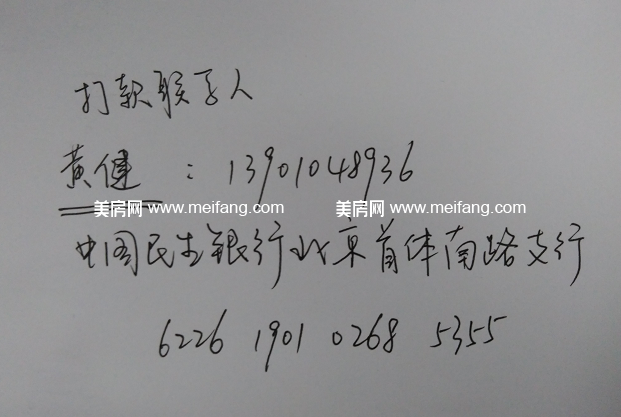 打款联系人
黄健：13901048936
美房网 www.meifang.com 美房网 www.meifang.com
中国民生银行北京首体南路支行
6226 1901 0268 5355